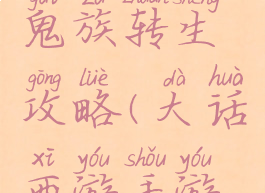 guǐ zú zhuǎn shēng
鬼族转生
gōng lüè dà huà
攻略(大话
xī yóu shǒu yóu
西游手游